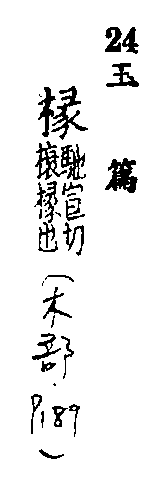 24 玉篇
椽
馳宣切
榱椽也
(木部・P189)